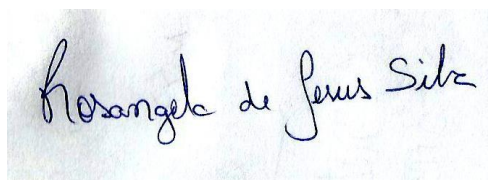 Rosangela de Jesus Silva